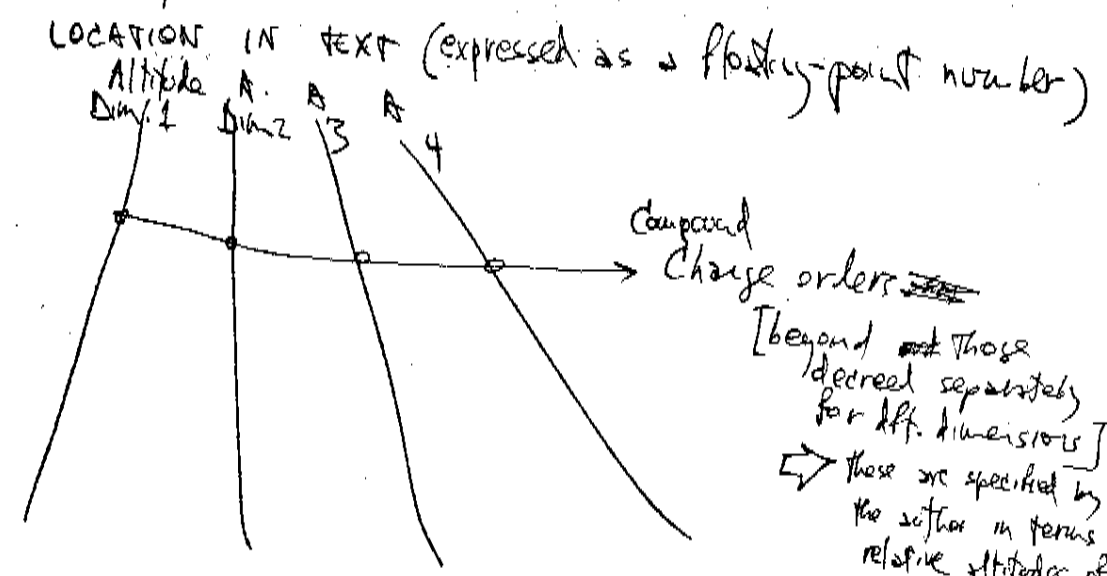 LOCATION IN TEXT (expressed as a floating-point number)
Altitude A. A A
Dim. 1 Dim 2 3 4
Compound
Change orders
[beyond those
decreed separately
for diff. dimensions]
⇨ these are specified by
the author in terms
relative altitudes of